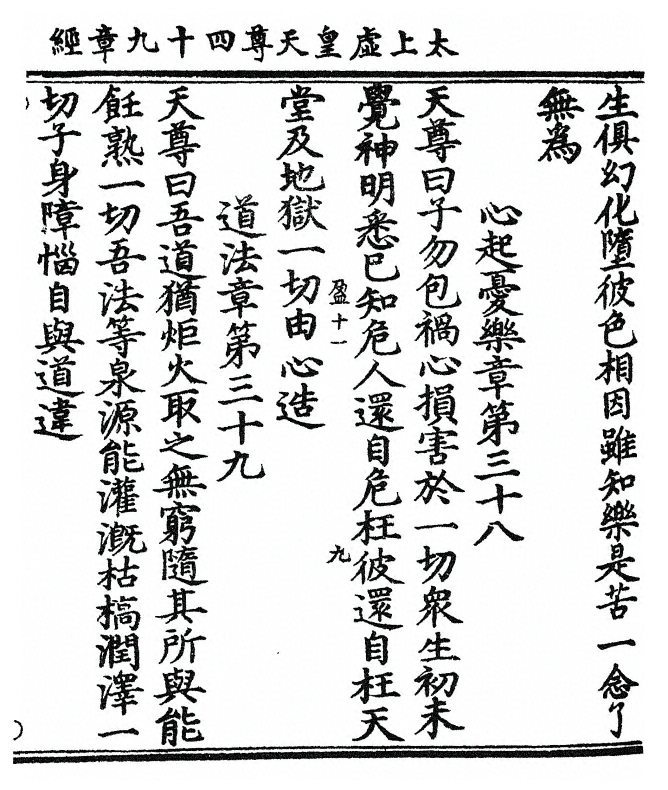 太上虛皇天尊四十九章經
生俱幻化墮彼色相因雖知樂是苦一念了
無為
心起憂樂章第三十八
天尊曰子勿包禍心損害於一切衆生初未
覺神明悉已知危人還自危枉彼還自枉天
盈十一
九
堂及地獄一切由心造
道法章第三十九
天尊曰吾道猶炬火取之無窮隨其所與能
飪熟一切吾法等泉源能灌溉枯槁潤澤一
切子身障惱自與道違